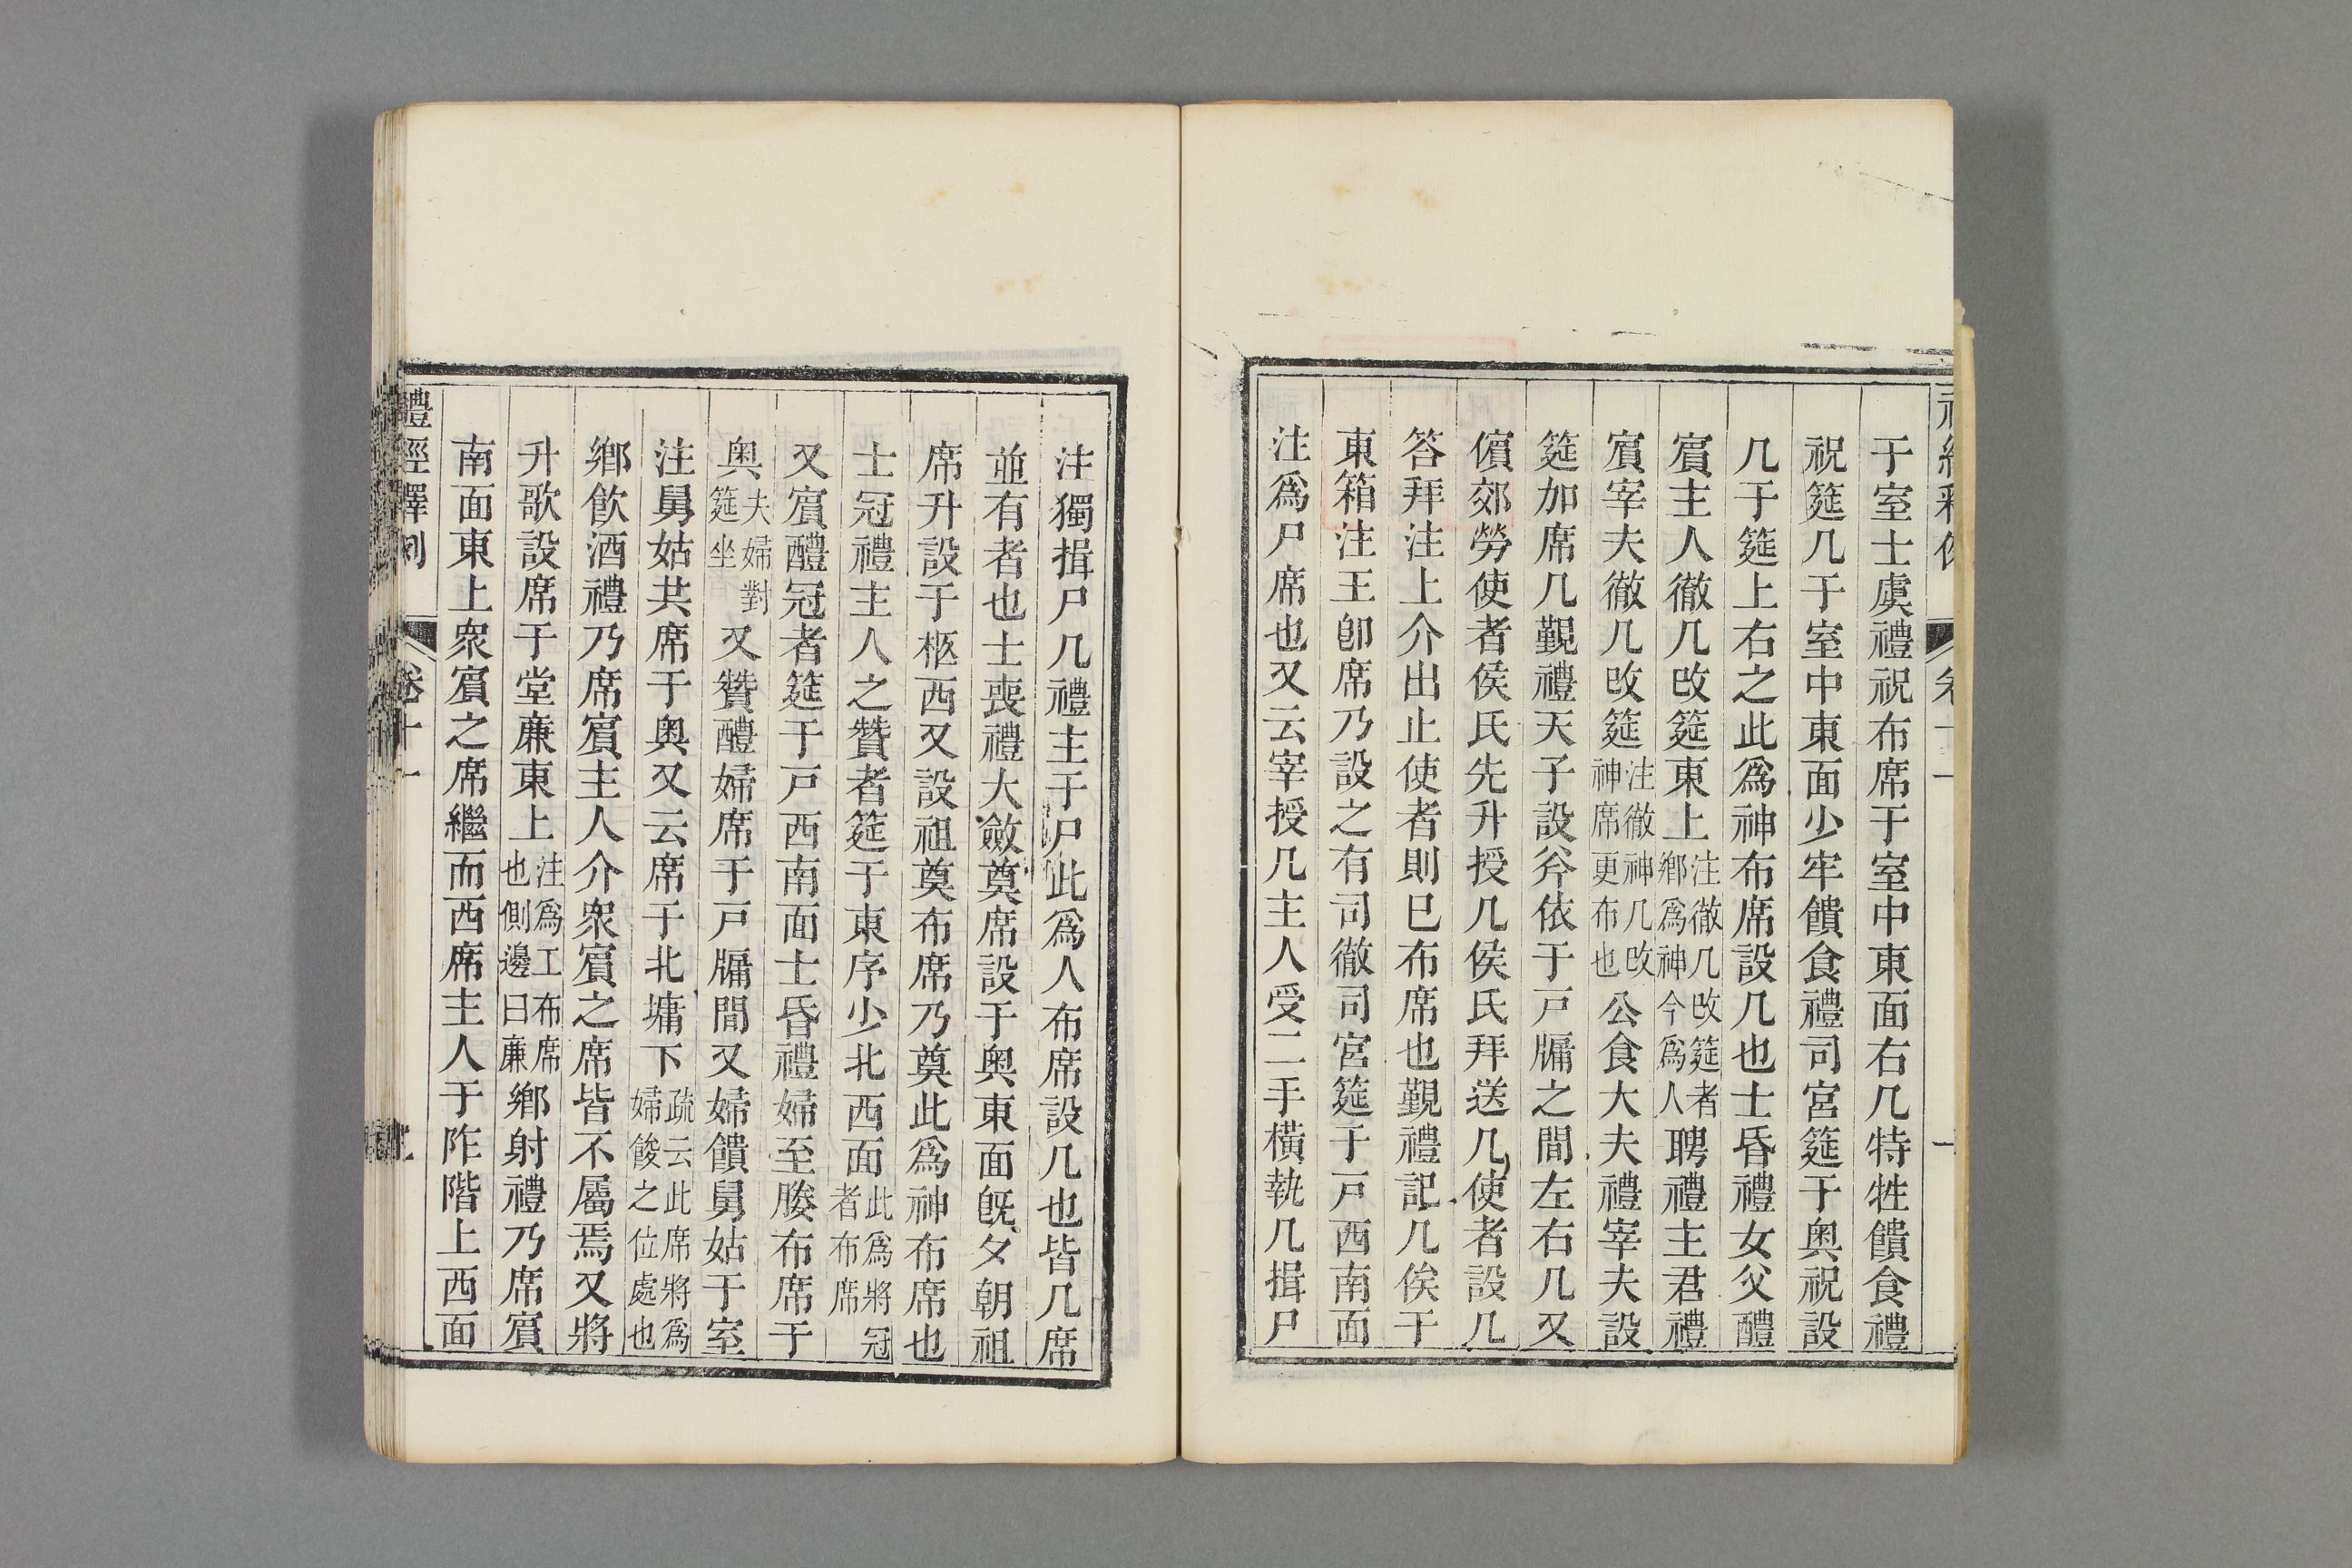 于室士虞禮祝布席于室中東面右几特牲饋食禮
祝筵几于室中東面少牢饋食禮司宮筵于奧祝設
几于筵上右之此爲神布席設几也士昏禮女父醴
賔主人徹几改筵東上注徹几改筵者鄉爲神今爲人聘禮主君禮
賔宰夫徹几改筵注徹神几改神席更布也公食大夫禮宰夫設
筵加席几覲禮天子設斧依于戸牖之間左右几又
儐郊勞使者侯氏先升授几侯氏拜送几使者設几
答拜注上介出止使者則已布席也覲禮記几俟于
東箱注王卽席乃設之有司徹司宮筵于戸西南面
注爲尸席也又云宰授几主人受二手橫執几揖尸
注獨揖尸几禮主于尸此爲人布席設几也皆几席
並有者也士喪禮大斂奠席設于奧東面旣夕朝祖
席升設于柩西又設祖奠布席乃奠此爲神布席也
士冠禮主人之贊者筵于東序少北西面此爲將冠者布席
又賔醴冠者筵于戸西南面士昏禮婦至媵布席于
奧夫婦對筵坐又贊醴婦席于戸牖間又婦饋舅姑于室
注舅姑共席于奧又云席于北墉下疏云此席將爲婦餕之位處也
鄉飲酒禮乃席賔主人介衆賔之席皆不屬焉又將
升歌設席于堂廉東上注爲工布席也側邊曰廉鄉射禮乃席賔
南面東上衆賔之席繼而西席主人于阼階上西面
禮經釋例 卷十一